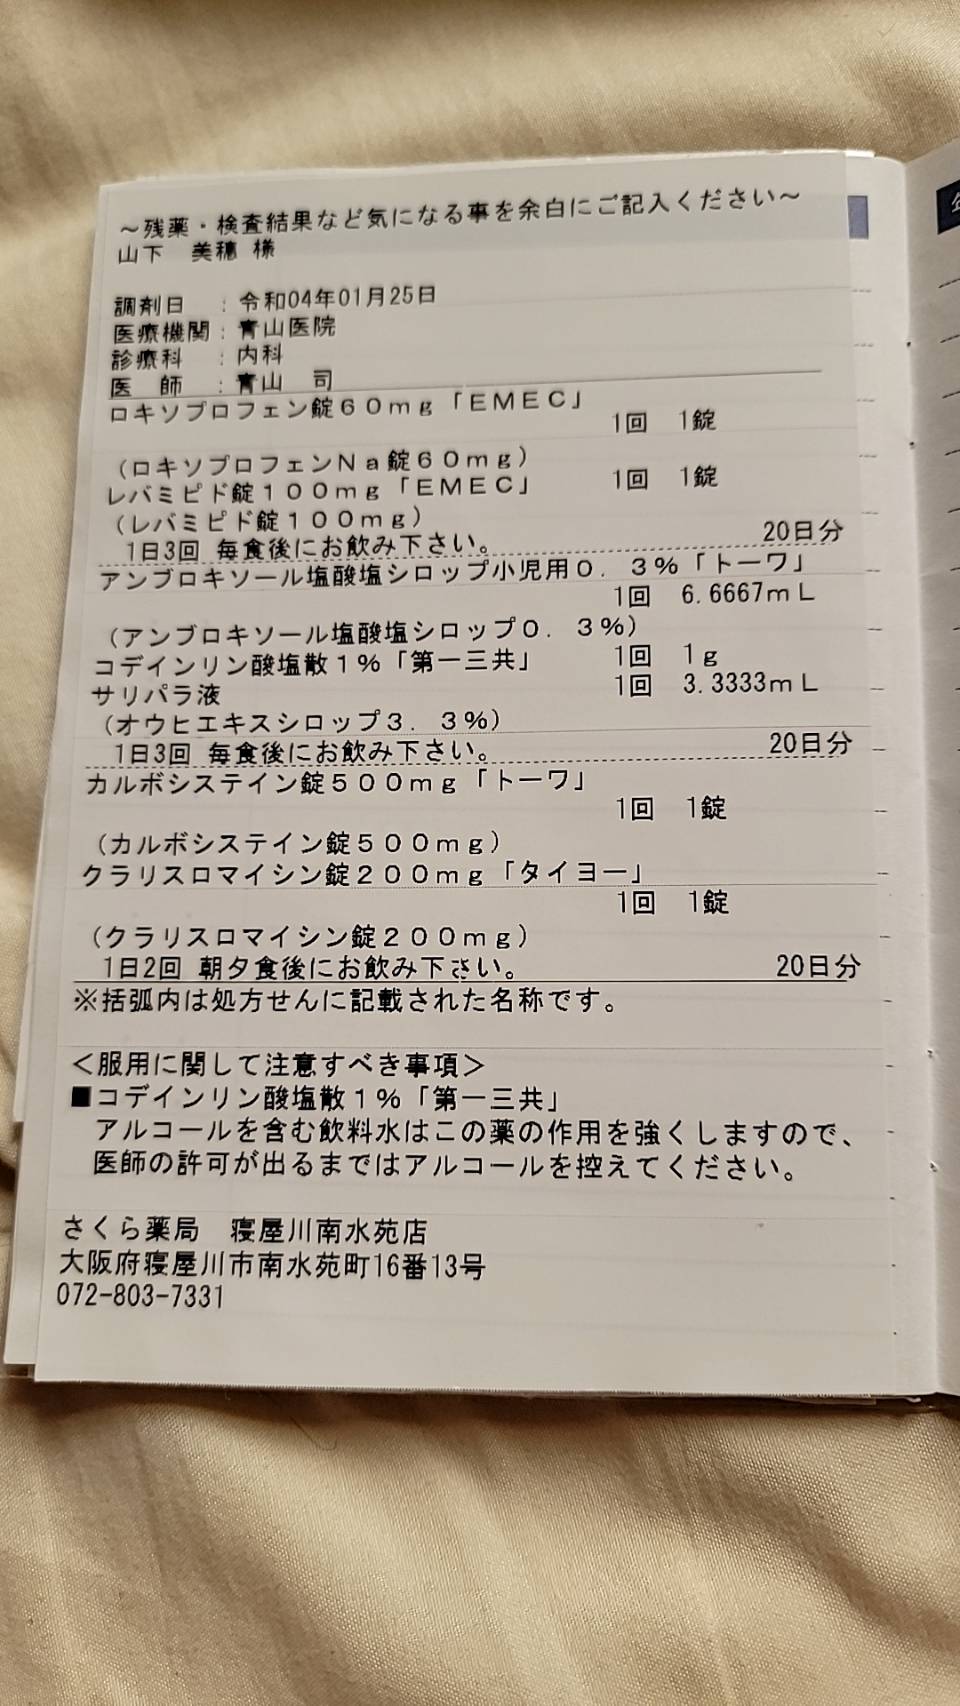 ～残薬・検査結果など気になる事を余白にご記入ください～
山下　美穂 様
調剤日　：令和04年01月25日
医療機関：青山医院
診療科　：内科
医　師　：青山　司
ロキソプロフェン錠６０ｍｇ「ＥＭＥＣ」
1回　1錠
（ロキソプロフェンＮａ錠６０ｍｇ）
レバミピド錠１００ｍｇ「ＥＭＥＣ」　1回　1錠
（レバミピド錠１００ｍｇ）
1日3回 毎食後にお飲み下さい。　20日分
アンブロキソール塩酸塩シロップ小児用０．３％「トーワ」
1回　6.6667ｍＬ
（アンブロキソール塩酸塩シロップ０．３％）
コデインリン酸塩散１％「第一三共」　1回　1ｇ
サリパラ液　1回　3.3333ｍＬ
（オウヒエキスシロップ３．３％）
1日3回 毎食後にお飲み下さい。　20日分
カルボシステイン錠５００ｍｇ「トーワ」
1回　1錠
（カルボシステイン錠５００ｍｇ）
クラリスロマイシン錠２００ｍｇ「タイヨー」
1回　1錠
（クラリスロマイシン錠２００ｍｇ）
1日2回 朝夕食後にお飲み下さい。　20日分
※括弧内は処方せんに記載された名称です。
＜服用に関して注意すべき事項＞
■コデインリン酸塩散１％「第一三共」
アルコールを含む飲料水はこの薬の作用を強くしますので、
医師の許可が出るまではアルコールを控えてください。
さくら薬局　寝屋川南水苑店
大阪府寝屋川市南水苑町16番13号
072-803-7331